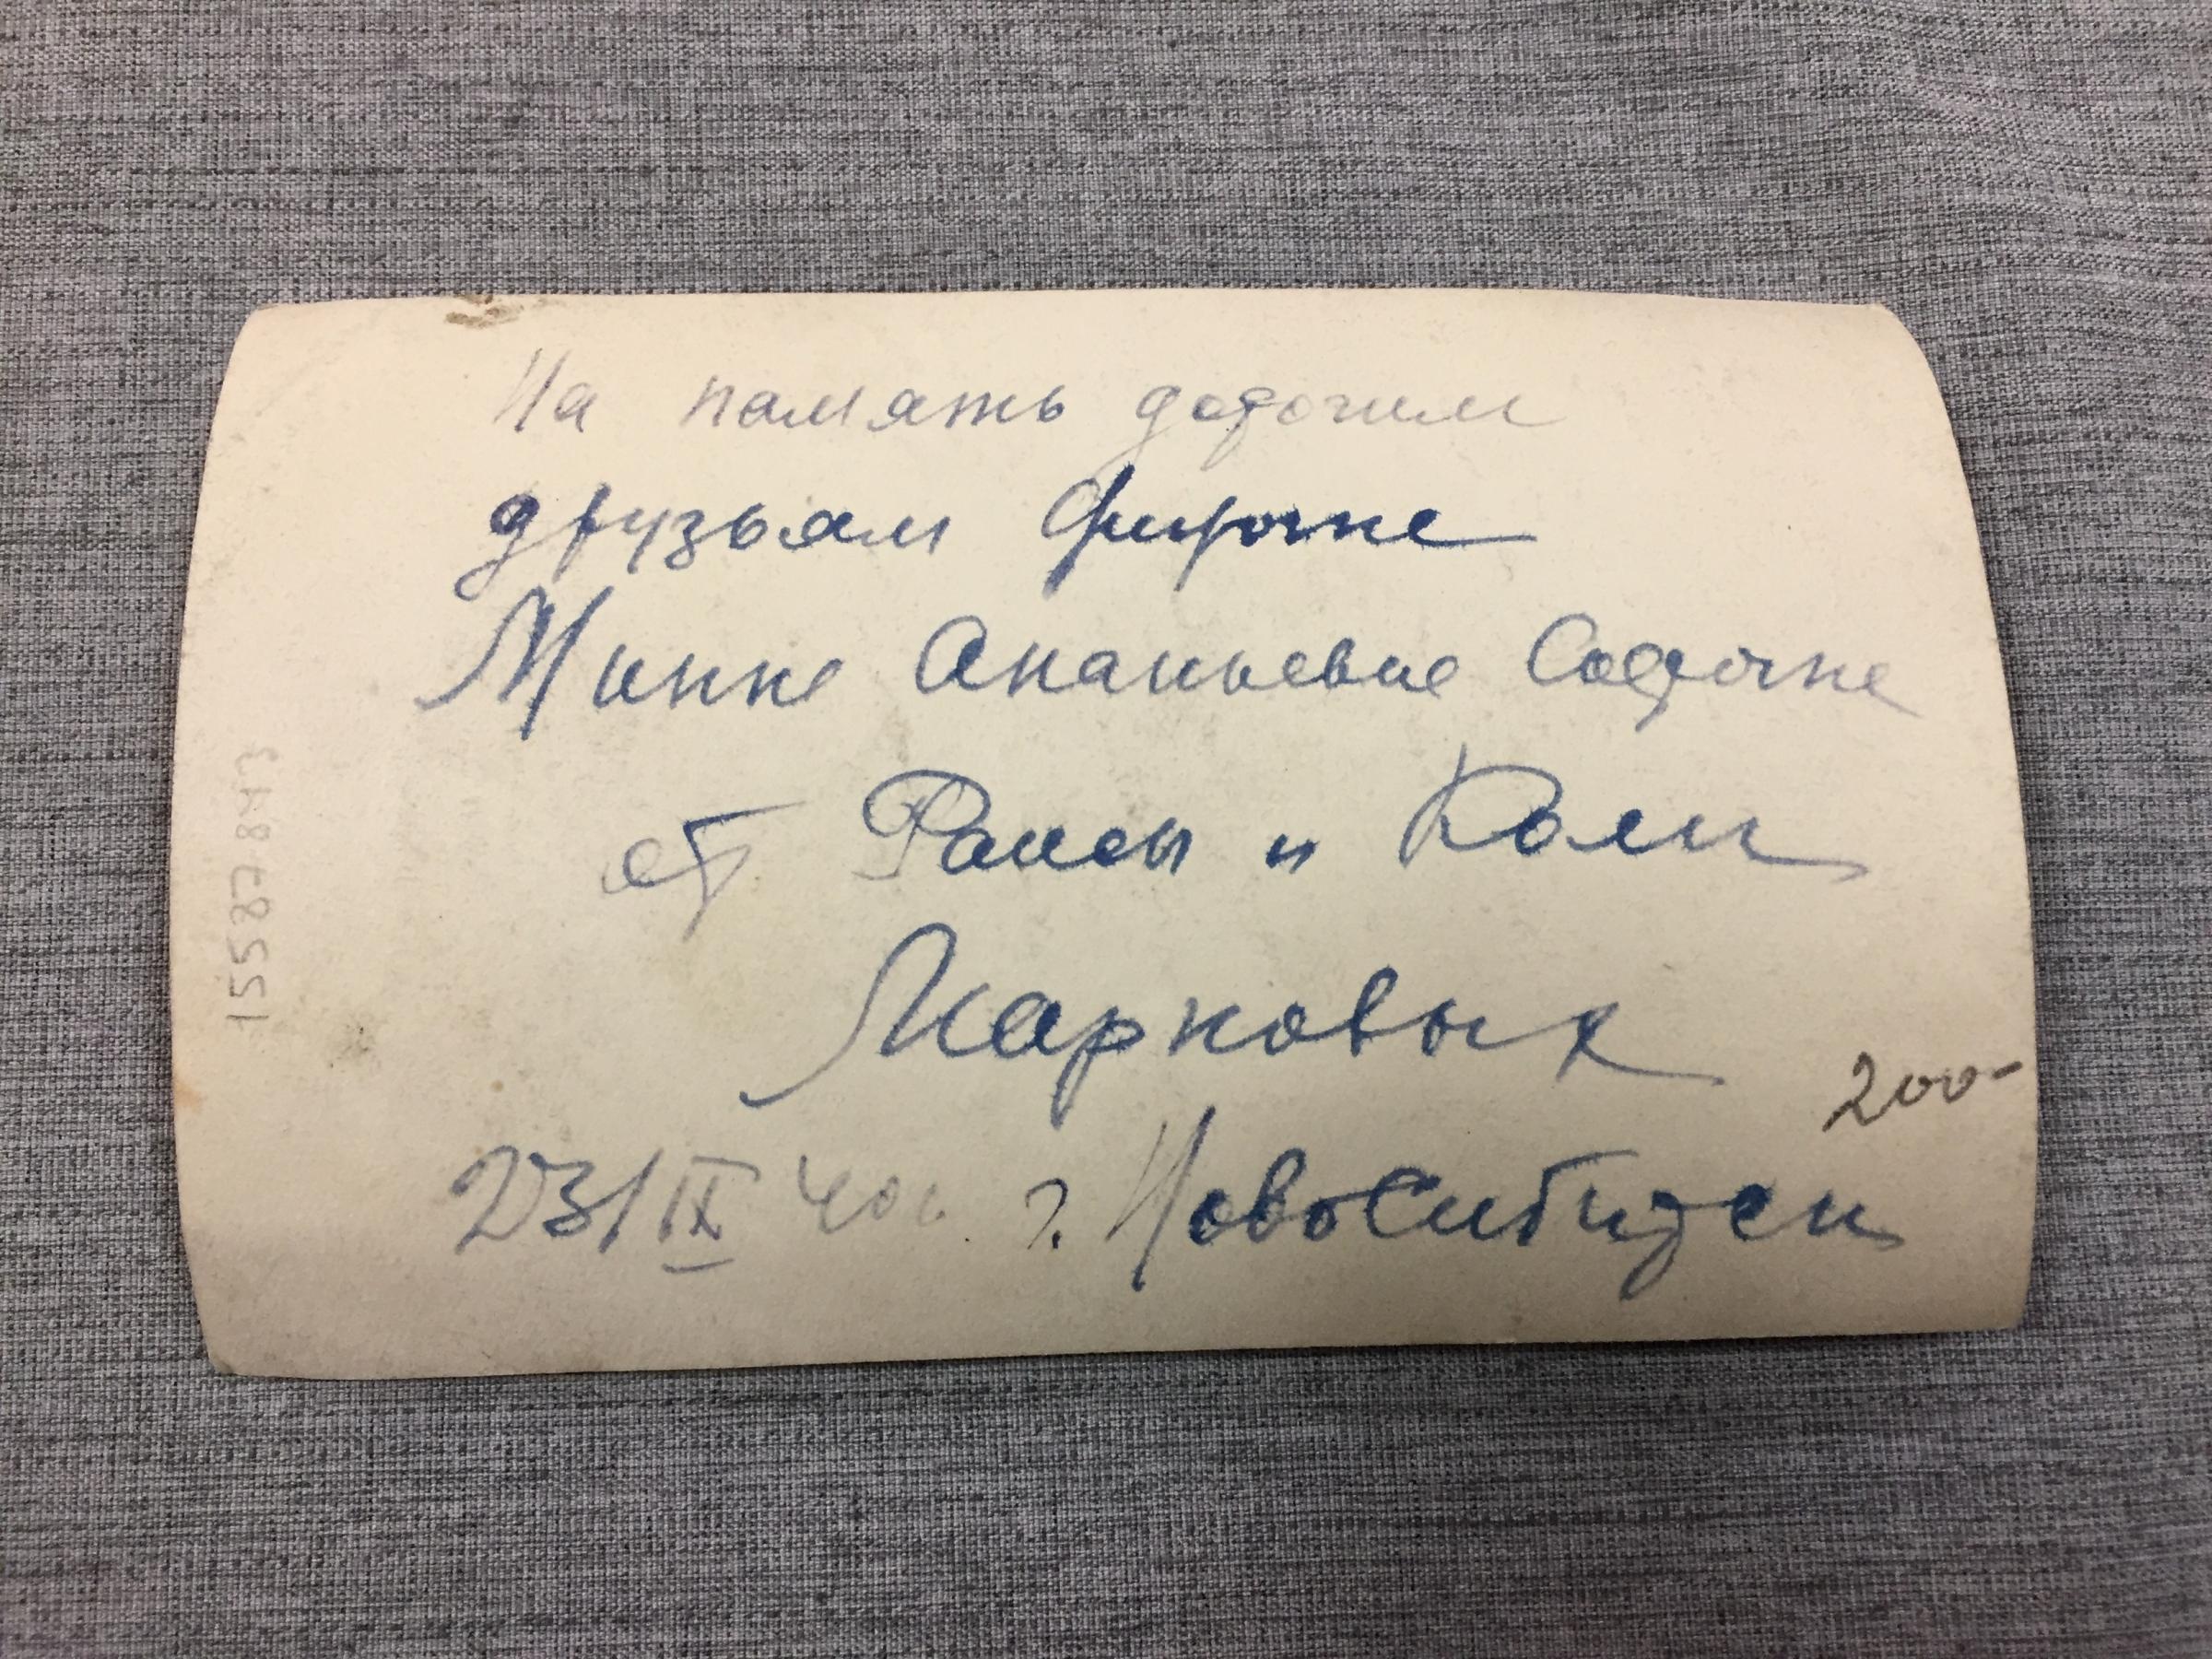 На память дорогим
друзьям Фирочке
Минне Ананьевне Софочке
от Раисы и Коли
Марковых
200-
23/IX 40г. г. Новосибирск
1558784